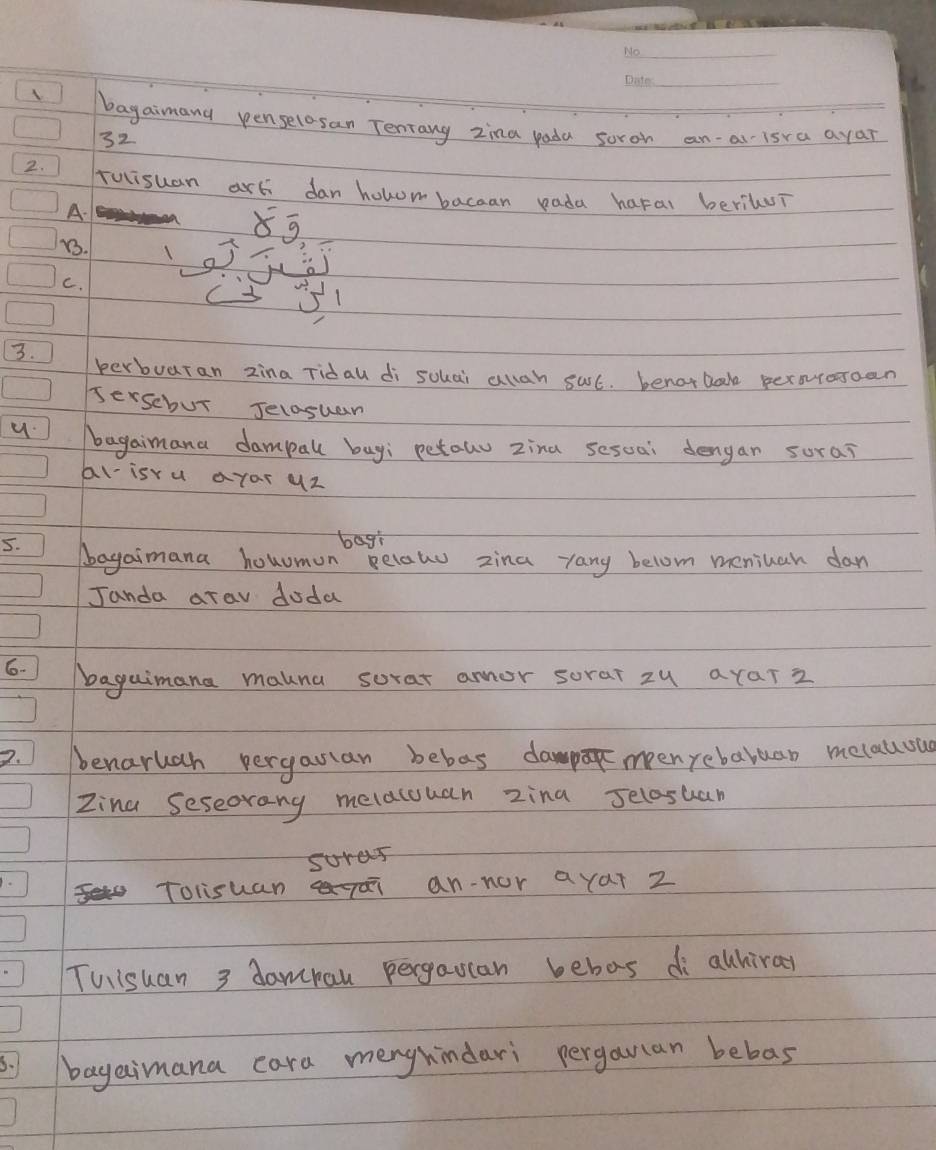 No
Date:
1 bagaimana penjelasan Tentang zina pada suroh an-al-isra ayat
32
2. Tuliskan arti dan hukum bacaan pada hafal berikut
A.
B.
C.
3. perbuatan zina Tidak di sukai allah swt. benarkah pernyataan
Tersebut Jelaskan
4. bagaimana dampak bagi pelaku zina sesuai dengan surat
al-isra ayat 42
5. bagaimana hukuman bagi pelaku zina yang belom menikah dan
Janda atau duda
6. bagaimana makna surat annor surat 24 ayat 2
7. benarkah pergaulan bebas menyebabkan melakuka
zina seseorang melakukan zina Jelaskan
Toliskan surat an-nor ayat 2
Tuliskan 3 dampak pergaulan bebas di akhirat
bagaimana cara menghindari pergaulan bebas